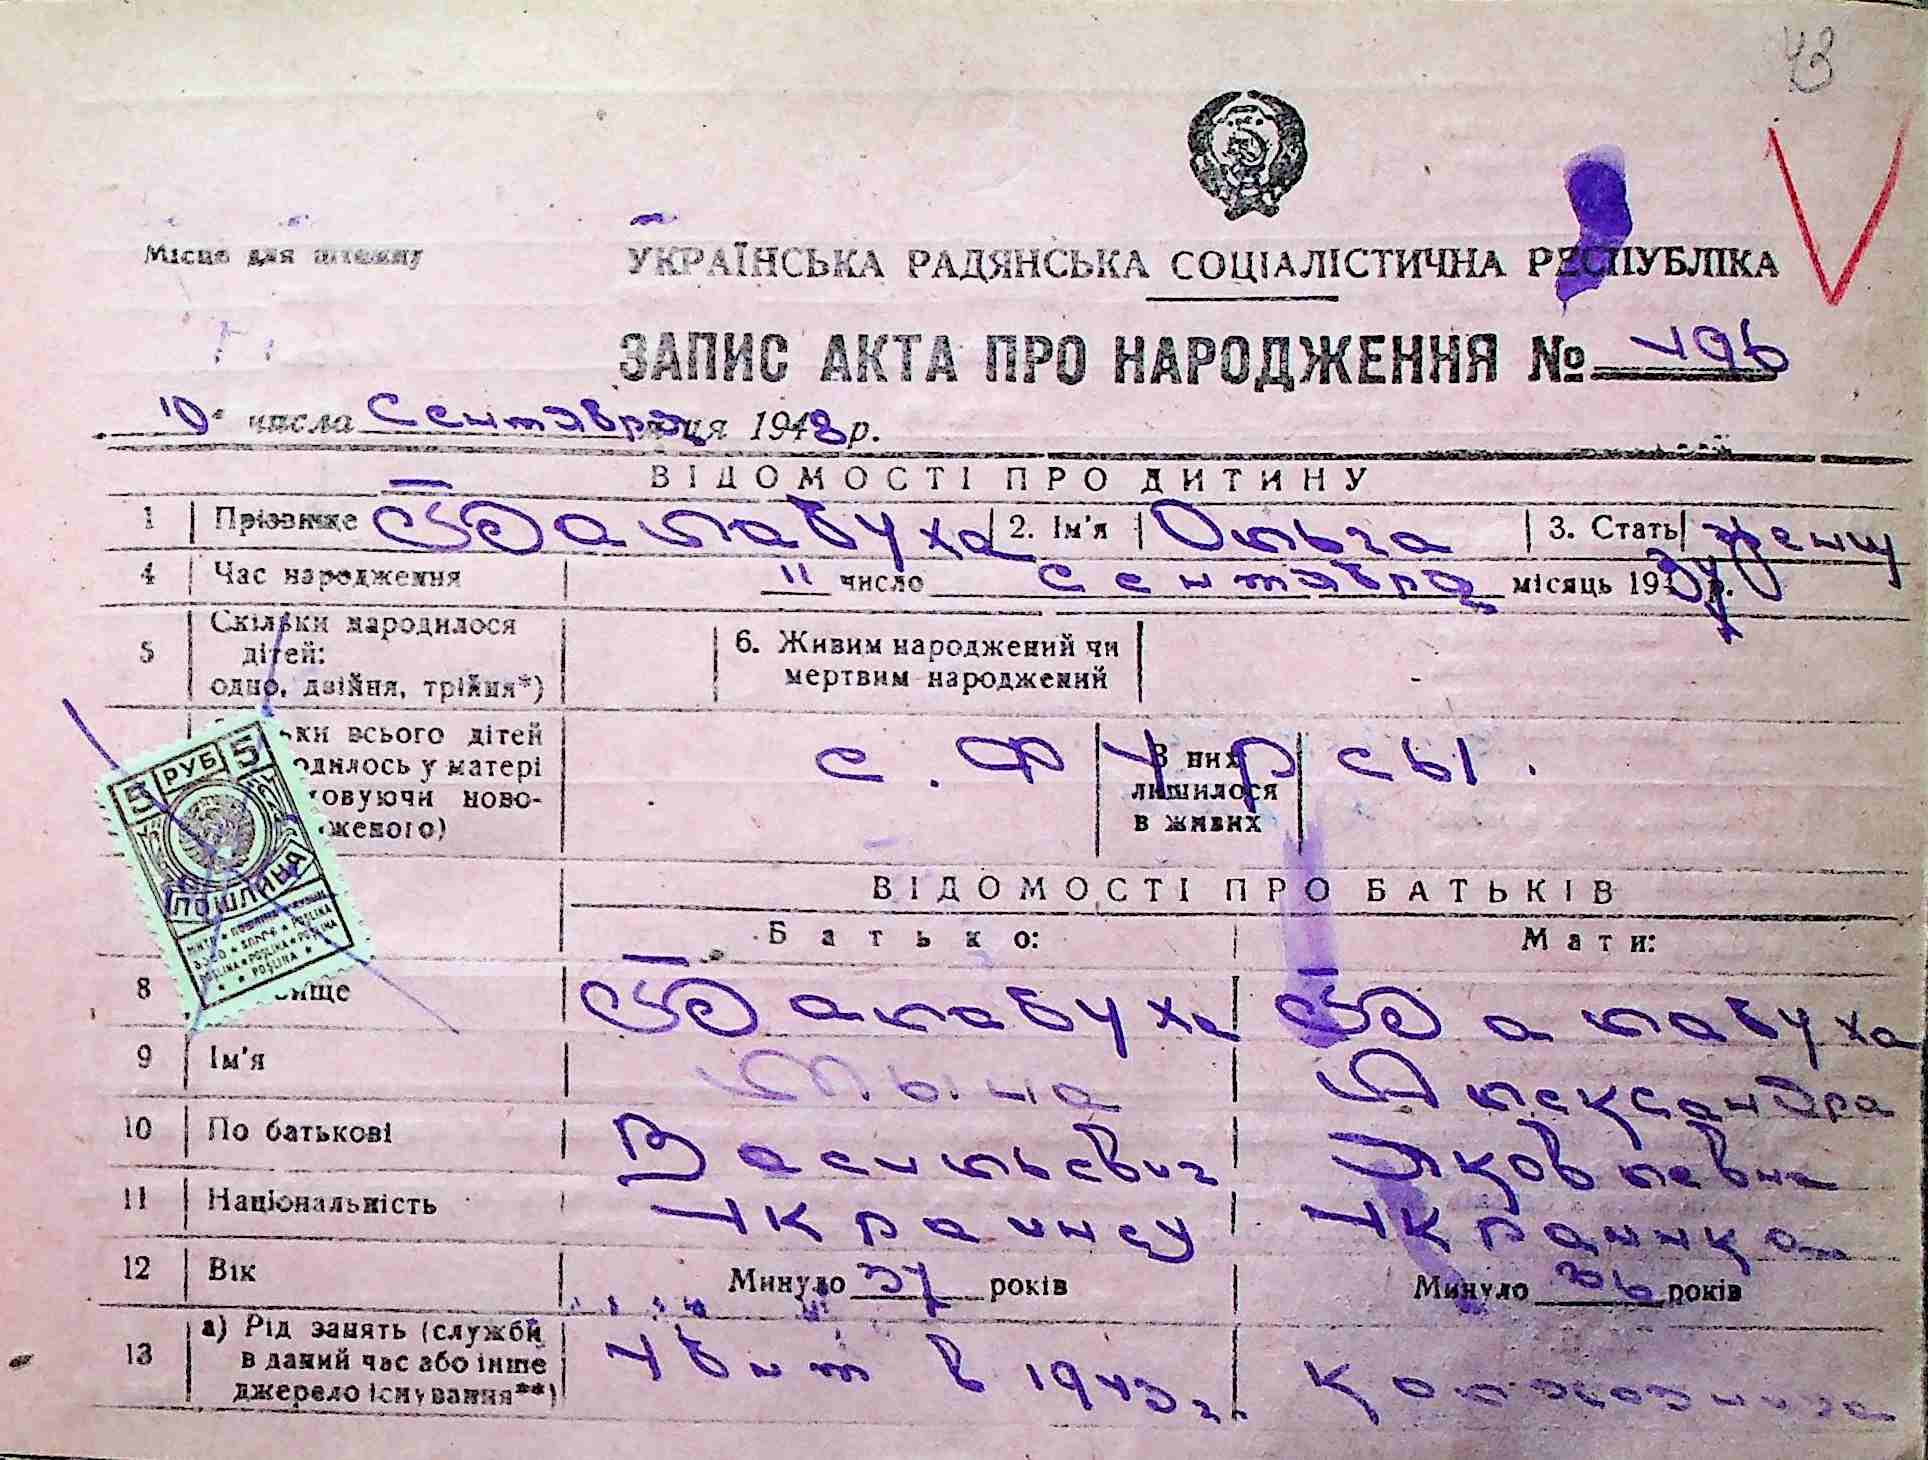 43
Місце для штампу
УКРАЇНСЬКА РАДЯНСЬКА СОЦІАЛІСТИЧНА РЕСПУБЛІКА
ЗАПИС АКТА ПРО НАРОДЖЕННЯ № 496
10 числа Сентября місяця 1948 р.
ВІДОМОСТІ ПРО ДИТИНУ
1 Прізвище Балабуха 2. Ім'я Ольга 3. Стать женщ
4 Час народження 11 число сентября місяць 1937 р.
5 Скільки народилося дітей: одно, двійня, трійня*) 6. Живим народжений чи мертвим народжений
ки всього дітей
одилось у матері
ховуючи ново-
женого) З них лишилося в живих
с. Фурсы.
5 РУБ 5
ПОШЛИНА
ВІДОМОСТІ ПРО БАТЬКІВ
Батько: Мати:
8 вище Балабуха Балабуха
9 Ім'я Александра
10 По батькові Васильевич Яковлевна
11 Національність Украинец Украинка
12 Вік Минуло 37 років Минуло 36 років
13 а) Рід занять (служби в даний час або інше джерело існування**) Убит в 1943 г. Колхозница